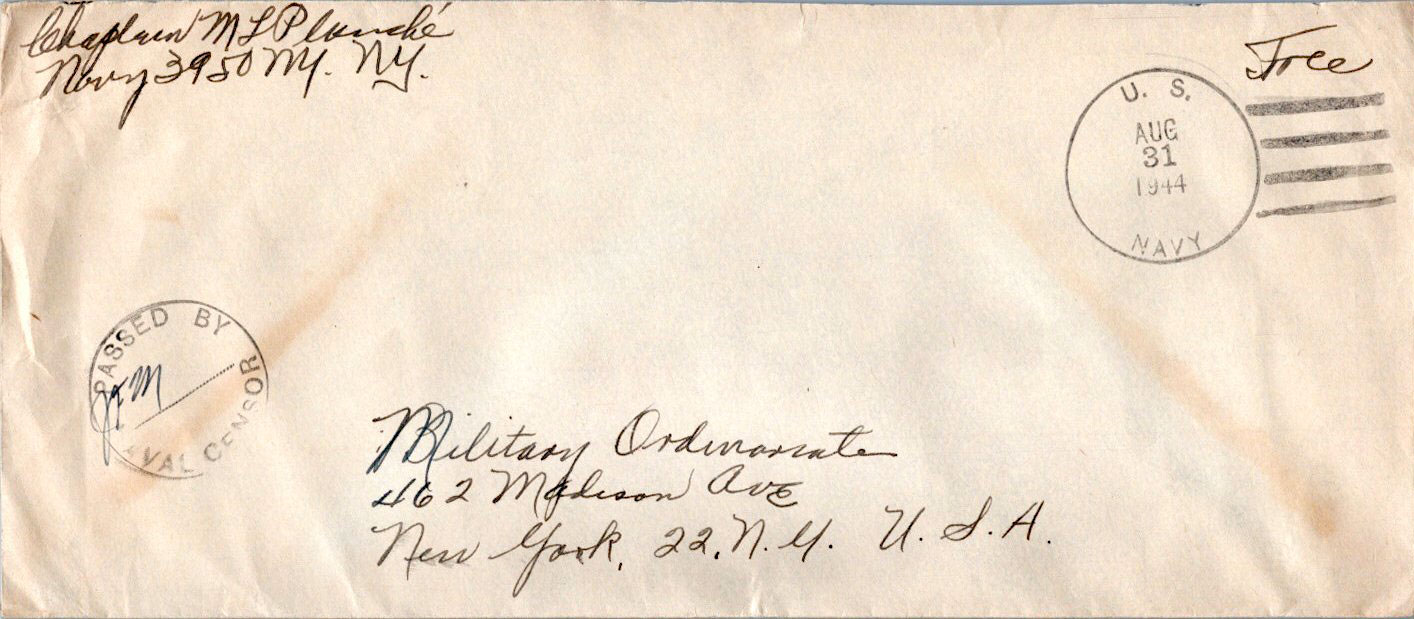 Chaplain M L Planché
Navy 3950 NY. NY.
Free
U. S.
AUG
31
1944
NAVY
PASSED BY
NAVAL CENSOR
JFM
Military Ordinariate
462 Madison Ave
New York, 22, N. Y. U. S. A.